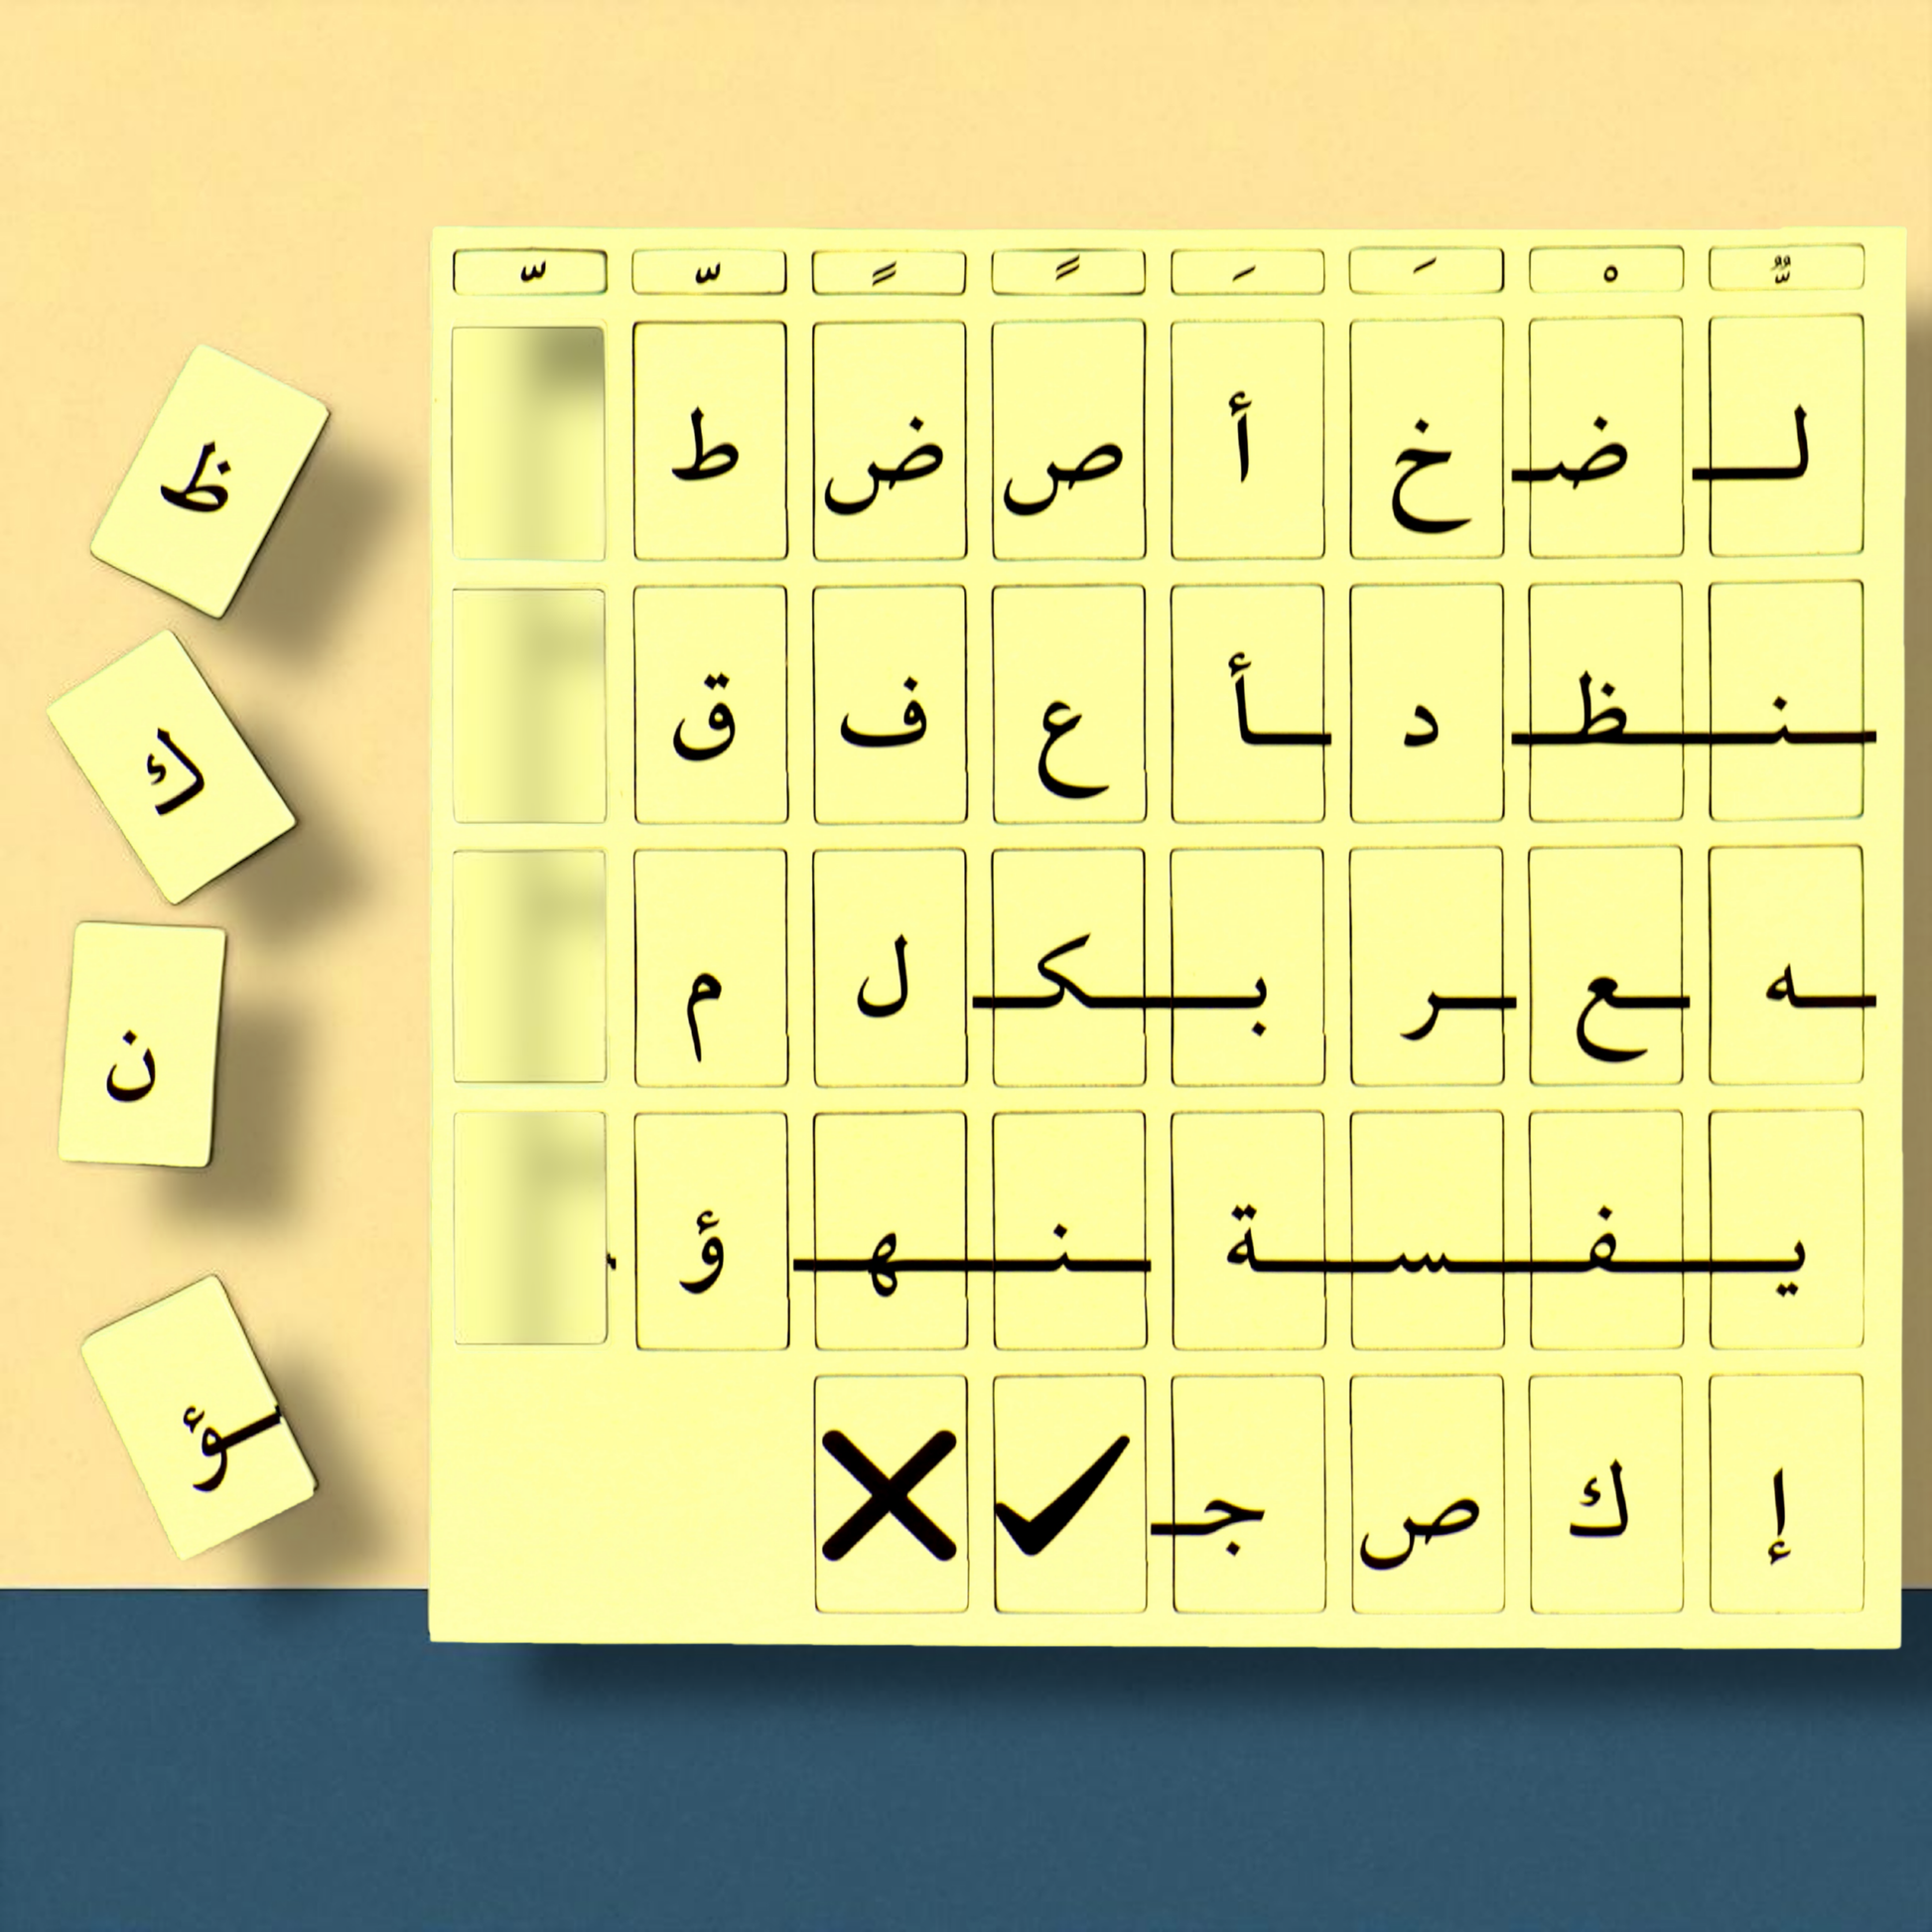 ـُّ ـْ ـَ ـَ ـً ـً ـّ ـّ
لـ ضـ خ أ ص ض ط
ـنـ ـظـ د ـأ ع ف ق
ـه ـع ـر بـ ـكـ ل م
يـ ـفـ ـسـ ـة ـنـ ـهـ ؤ
إ ك ص جـ ✓ ✗
ظ
ك
ن
ـؤ